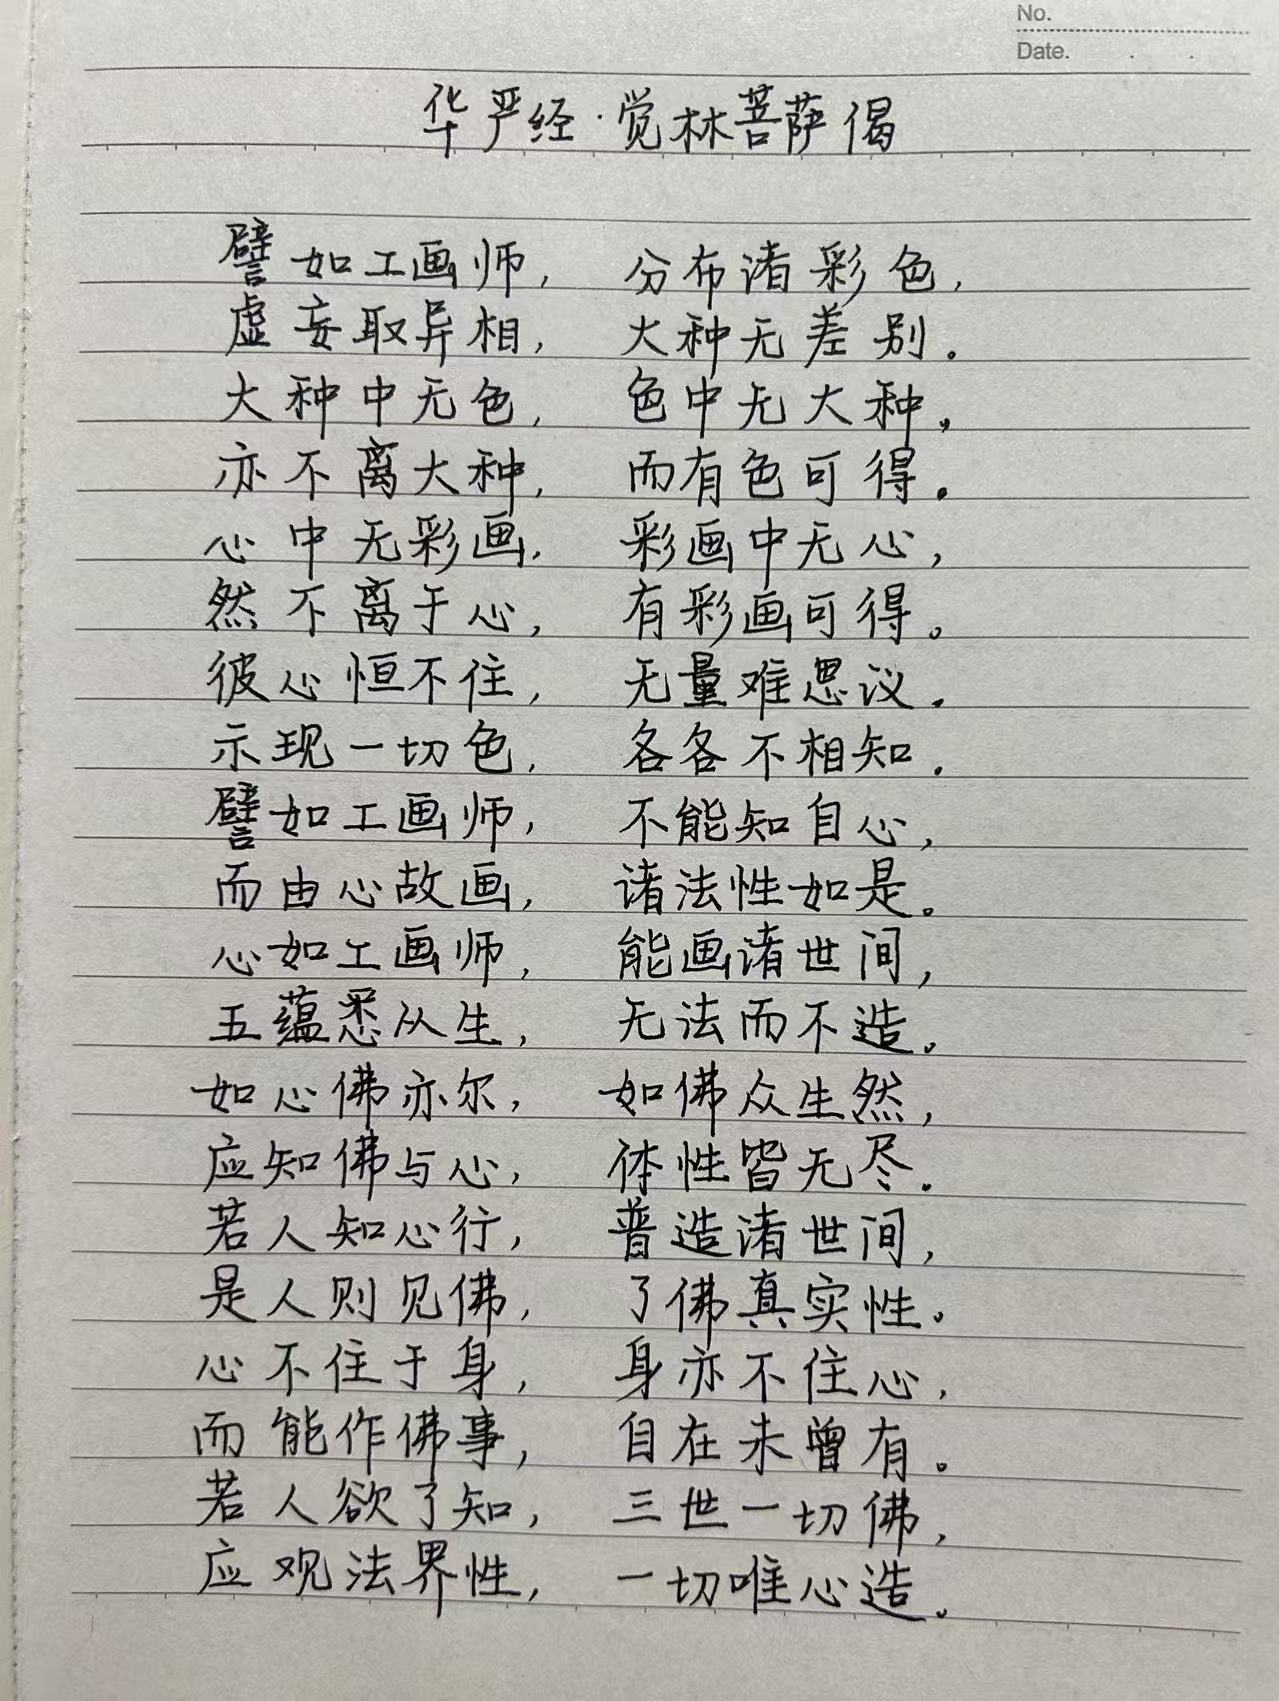 No.
Date.
华严经·觉林菩萨偈
譬如工画师, 分布诸彩色,
虚妄取异相, 大种无差别.
大种中无色, 色中无大种,
亦不离大种, 而有色可得.
心中无彩画, 彩画中无心,
然不离于心, 有彩画可得。
彼心恒不住, 无量难思议.
示现一切色, 各各不相知.
譬如工画师, 不能知自心,
而由心故画, 诸法性如是。
心如工画师, 能画诸世间,
五蕴悉从生, 无法而不造。
如心佛亦尔, 如佛众生然,
应知佛与心, 体性皆无尽.
若人知心行, 普造诸世间,
是人则见佛, 了佛真实性。
心不住于身, 身亦不住心,
而能作佛事, 自在未曾有.
若人欲了知, 三世一切佛,
应观法界性, 一切唯心造。